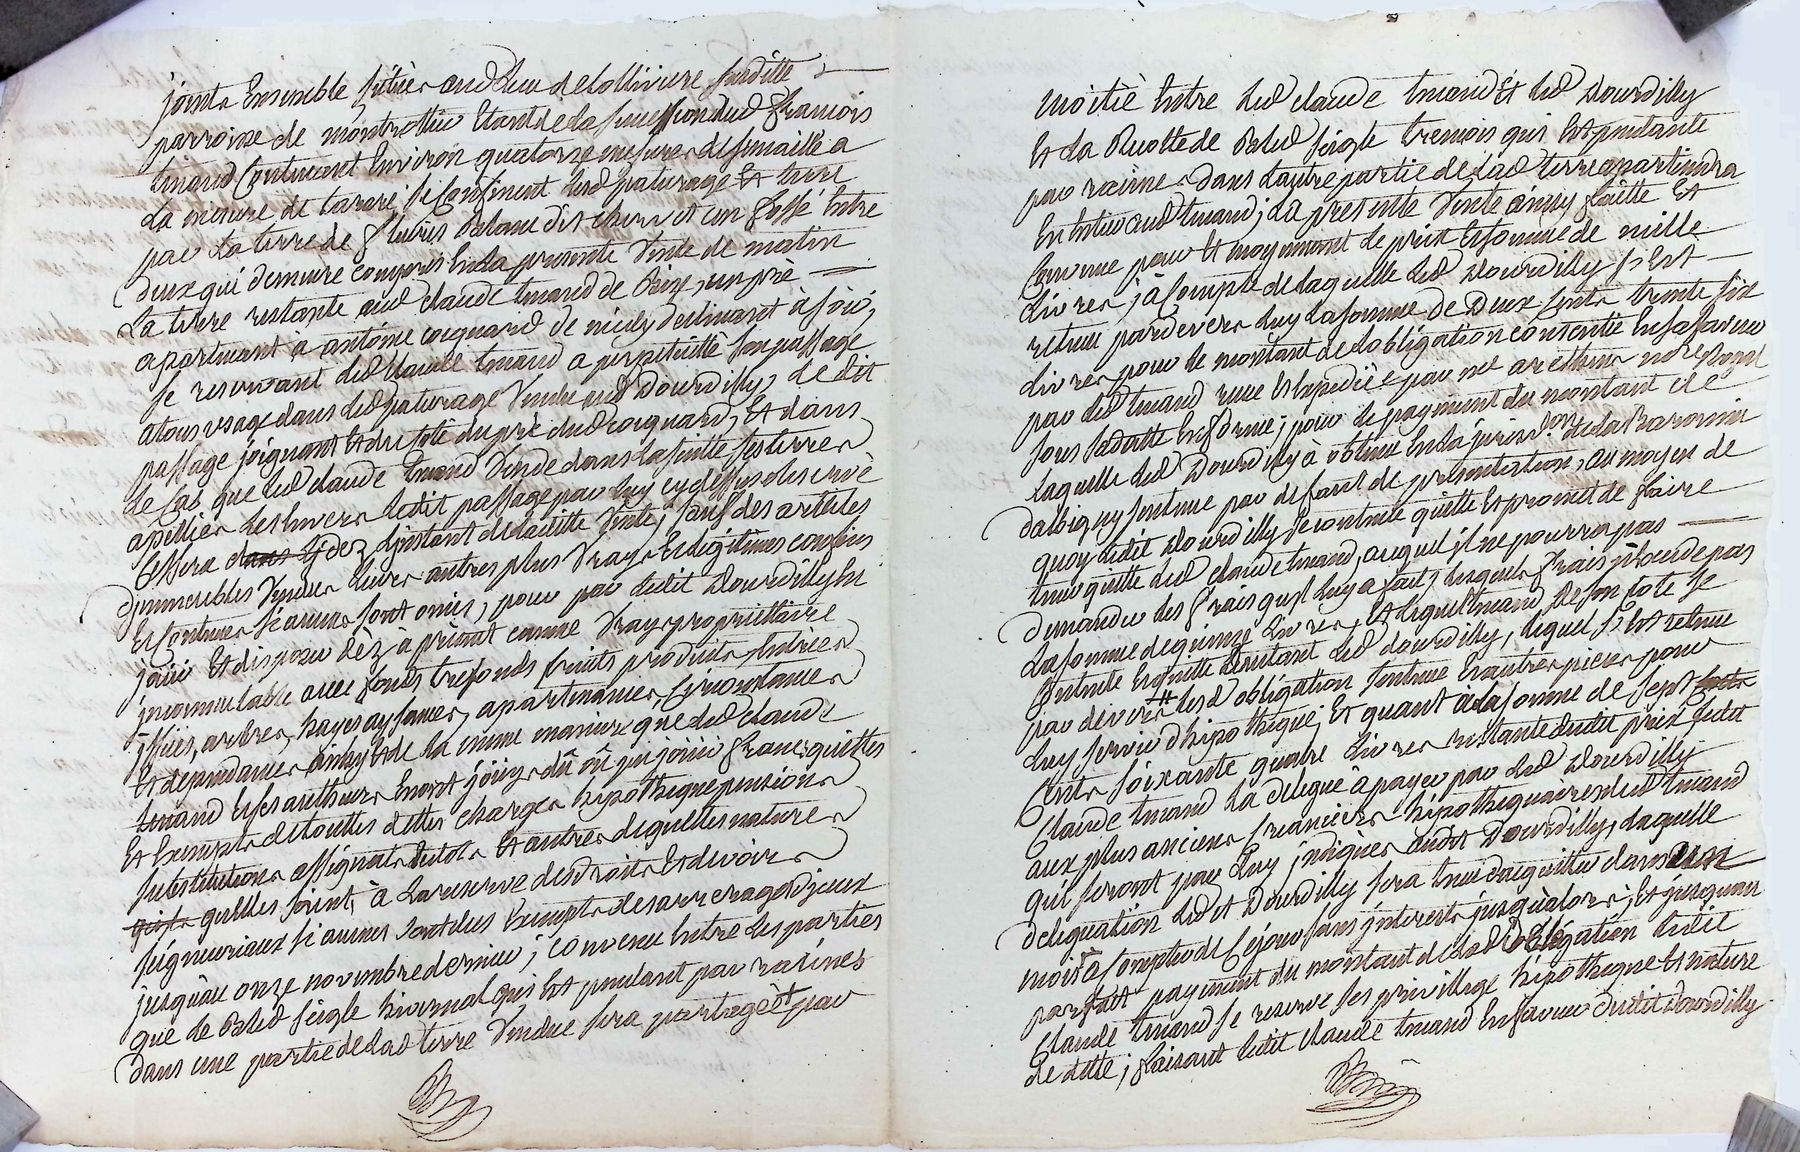 joints Ensemble situés aud lieu de lolliviere susditte
parroisse de montrottier Etant de la succession dud françois
tinand Contenant Environ quatorze mesures de semaille a
la mesure de tarare se Confinent lesd paturage Et terre
par la terre de fleuris Balane dit cherre et un fossé Entre
deux qui demeure compris En la presente Vente de matin
La terre restante aud claude tinand de Bize, un pré
apartenant à antoine cocquard de midy declinant à soir,
se reservant led Claude tinand a perpetuitté son passage
a tous usage dans led paturage Vendu aud Dourdilly, ledit
passage joignant Et du soté du pré dud cocquard, Et dans
le Cas que led claude tinand Vende dans la suitte ses terres
apellier les hivers ledit passage par luy cy dessus reservé
Cessera dez Linstant de laditte Vente, sauf des artictes
d'immeubles Vendus leurs autres plus Vrays Et legitimes confins
Et Contenues si aucuns sont omis, pour par ledit Dourdilly En
jouir Et disposer dèz à present comme Vray propriettaire
incommutable avec fonds trefonds fruits produits Entrées
issües, arbres, hayes aysances, apartenances, Circonstances
Et dependances ainsy Et de la meme maniere que led claude
tinand Et ses autheurs En ont joüy dû oû pu jouir francs quittes
Et Exempts de touttes dettes charges hipotheque pensions
substitutions assignats dutots Et autres de quelles natures
qu'elles soint, à la reserve des droits Et devoirs
seigneuriaux si aucuns sont dus Exempts des arrerages d'jceux
jusqu'au onze novembre dernier; convenu Entre les parties
que le Bled seigle hivernal qui Est pendant par racines
dans une partie de lad terre Vendue sera partagé Et par
moitiè Entre led claude tinand Et led Dourdilly
Et la Recolte de Bled seigle tremois qui Est pendante
par racines dans l'autre partie de lad terre apartiendra
En Entier aud tinand; La presente Vente ainsy faitte Et
Convenue pour Et moyennant le prix Et somme de mille
Livres, à Compte de laquelle led Dourdilly s'Est
retenu pardevers Luy la somme de Deux Cents trente six
Livres pour le montant de lobligation consentie En sa faveur
par led tinand recue Et Expediée par me arethus notre Royal
sous sa datte En forme; pour le payment du montant de
laquelle led Dourdilly à obtenu En la jurisdon de la Baronnie
dalbigny sentence par defaut de presentation, au moyen de
quoy ledit Dourdilly se contente quitte Et promet de faire
tenir quitte led claude tinand, auquel jl ne pourra pas
demander les frais qu'jl luy a faits, lesquels frais n'Excede pas
la somme de quinze Livres, Et lequel tinand de son coté se
contente Et quitte dautant led dourdilly, lequel s'Est retenu
par devers # lesd obligation sentence Et autres pieces pour
luy servir d'hipotheque; Et quant à la somme de sept
Cents soixante quatre Livres restante dudit prix ledit
Claude tinand la delegue à payer par led Dourdilly
aux plus anciens creanciers hipothequaires dud tinand
qui seront par Luy jndiqués audit Dourdilly, laquelle
deleguation led et Dourdilly sera tenu d'aquitter dans un
mois à Compter de Cejour sans jnterests jusqu'alors; Et jusqu'au
parfait payement du montant de lad Delégation ledit
Claude tinand se reserve ses privillege hipotheque Et nature
de dette; faisant ledit claude tinand En faveur dudit Dourdilly